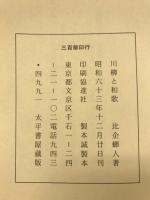 三百部印行
川柳と和歌 比企蝉人著
昭和六十三年十二月廿日刊
印刷協進社 製本誠製本
東京都文京区千石一―二四
―二一―一〇二電話九四三
・四九九一 太平書屋蔵版